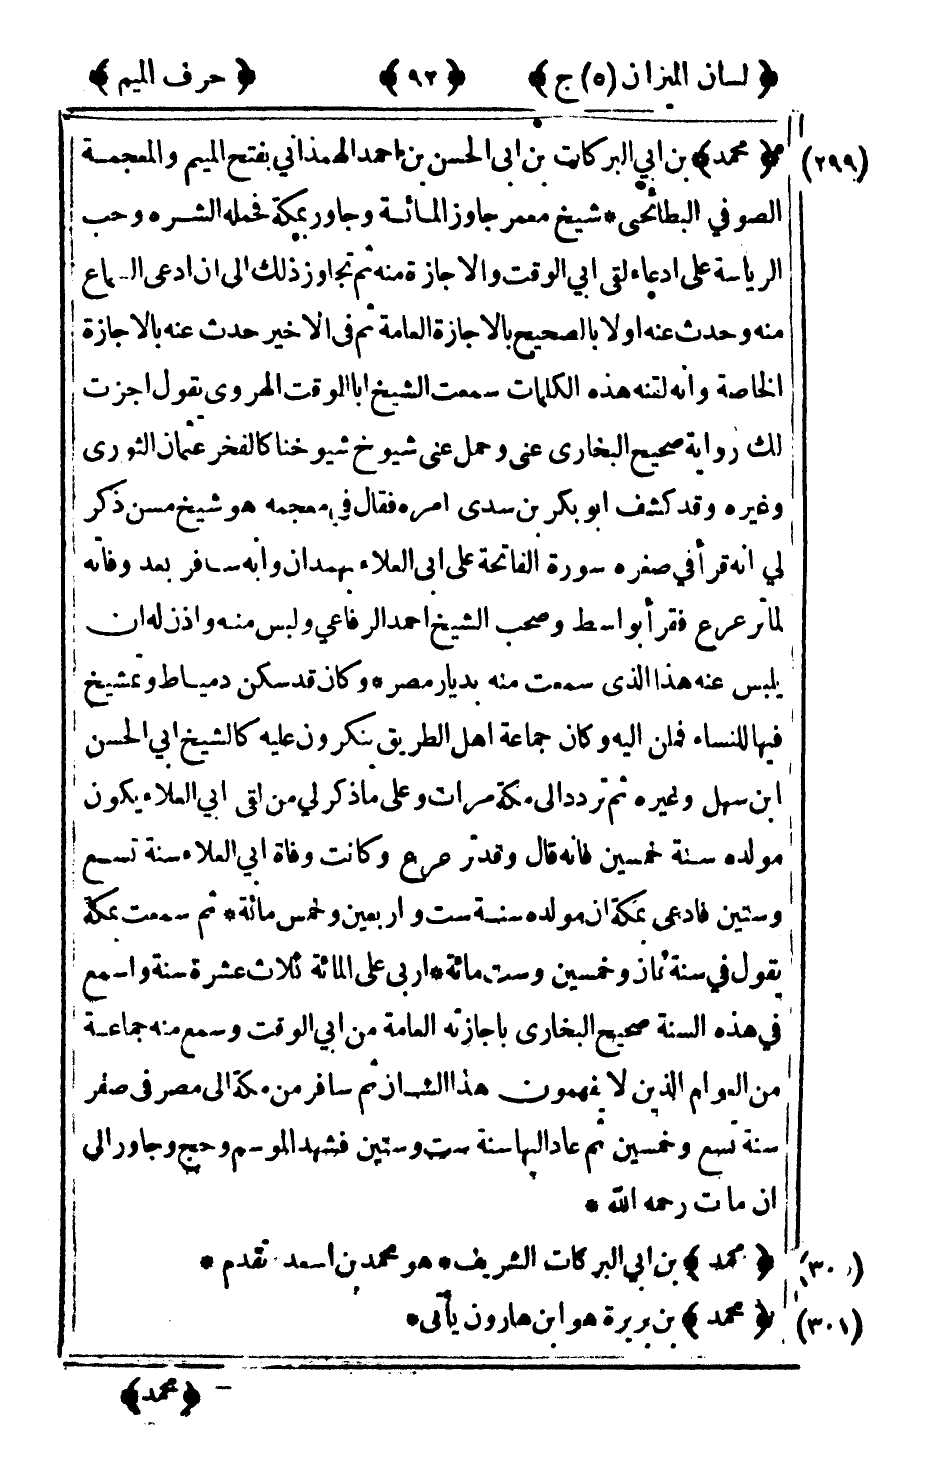 ﴿ لسان الميزان (٥) ج ﴾ ﴿ ٩٢ ﴾ ﴿ حرف الميم ﴾
(٢٩٩) ﴿ محمد ﴾ بن ابي البركات بن ابى الحسن بن احمد الهمذاني بفتح الميم والمعجمة
الصوفي البطائحى * شيخ معمر جاوز المائة وجاور بمكة فحمله الشره وحب
الرياسة على ادعاء لقى ابي الوقت والاجازة منه ثم تجاوز ذلك الى ان ادعى السماع
منه وحدث عنه اولا بالصحيح بالاجازة العامة ثم فى الاخير حدث عنه بالاجازة
الخاصة وانه لقنه هذه الكلمات سمعت الشيخ ابا الوقت الهروى يقول اجزت
لك رواية صحيح البخارى عنى وحمل عنى شيوخ شيوخنا كالفخر عثمان الثورى
وغيره وقد كشف ابو بكر بن سدى امره فقال في معجمه هو شيخ مسن ذكر
لي انه قرأ في صغره سورة الفاتحة على ابى العلاء بهمدان وانه سافر بعد وفاته
لما ترعرع فقرأ بواسط وصحب الشيخ احمد الرفاعي ولبس منه واذن له ان
يلبس عنه هذا الذى سمعت منه بديار مصر * وكان قد سكن دمياط وتمشيخ
فيها للنساء فملن اليه وكان جماعة اهل الطريق ينكرون عليه كالشيخ ابي الحسن
ابن سهل وغيره ثم تردد الى مكة مرات وعلى ما ذكر لي من لقى ابي العلاء يكون
مولده سنة خمسين فانه قال وقد ترعرع وكانت وفاة ابي العلاء سنة تسع
وستين فادعى بمكة ان مولده سنة ست واربعين وخمس مائة * ثم سمعت بمكة
يقول في سنة ثمان وخمسين وست مائة * اربى على المائة ثلاث عشرة سنة واسمع
في هذه السنة صحيح البخارى باجازته العامة من ابي الوقت وسمع منه جماعة
من العوام الذين لا يفهمون هذا الشان ثم سافر من مكة الى مصر فى صفر
سنة تسع وخمسين ثم عاد اليها سنة ست وستين فشهد الموسم وحج وجاور الى
ان مات رحمه الله *
(٣٠٠) ﴿ محمد ﴾ بن ابي البركات الشريف * هو محمد بن اسعد تقدم *
(٣٠١) ﴿ محمد ﴾ بن بريرة هو ابن هارون يأتى *
﴿ محمد ﴾